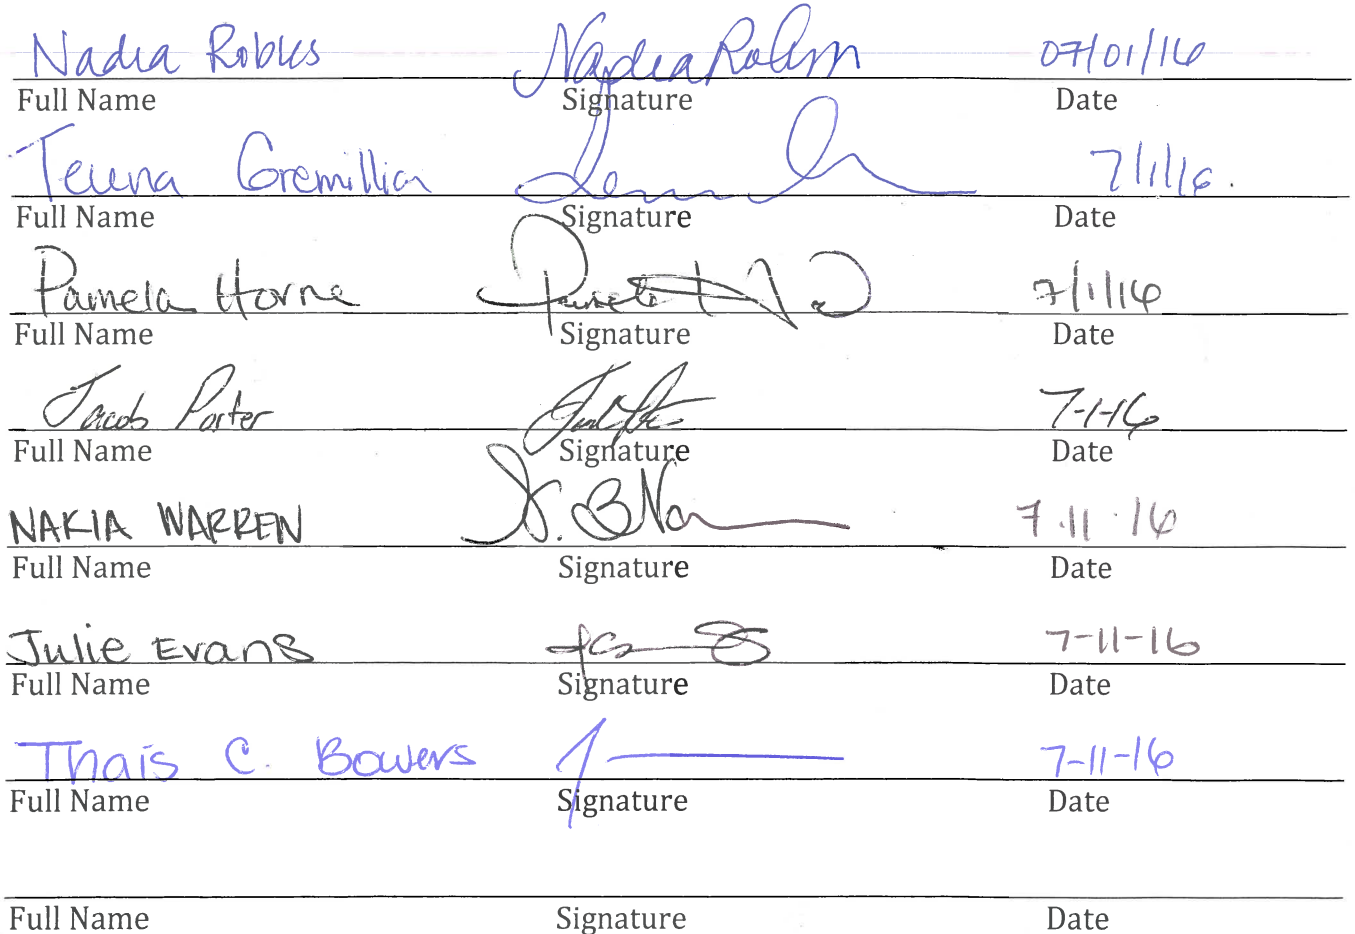 Nadia Robles Nadia Robles 07/01/16
Full Name Signature Date
Gremillion 7/1/16.
Full Name Signature Date
Pamela Horne 7/1/16
Full Name Signature Date
Jacob Porter 7-1-16
Full Name Signature Date
NAKIA WARREN 7.11.16
Full Name Signature Date
Julie Evans 7-11-16
Full Name Signature Date
Thais C. Bowers 7-11-16
Full Name Signature Date
Full Name Signature Date